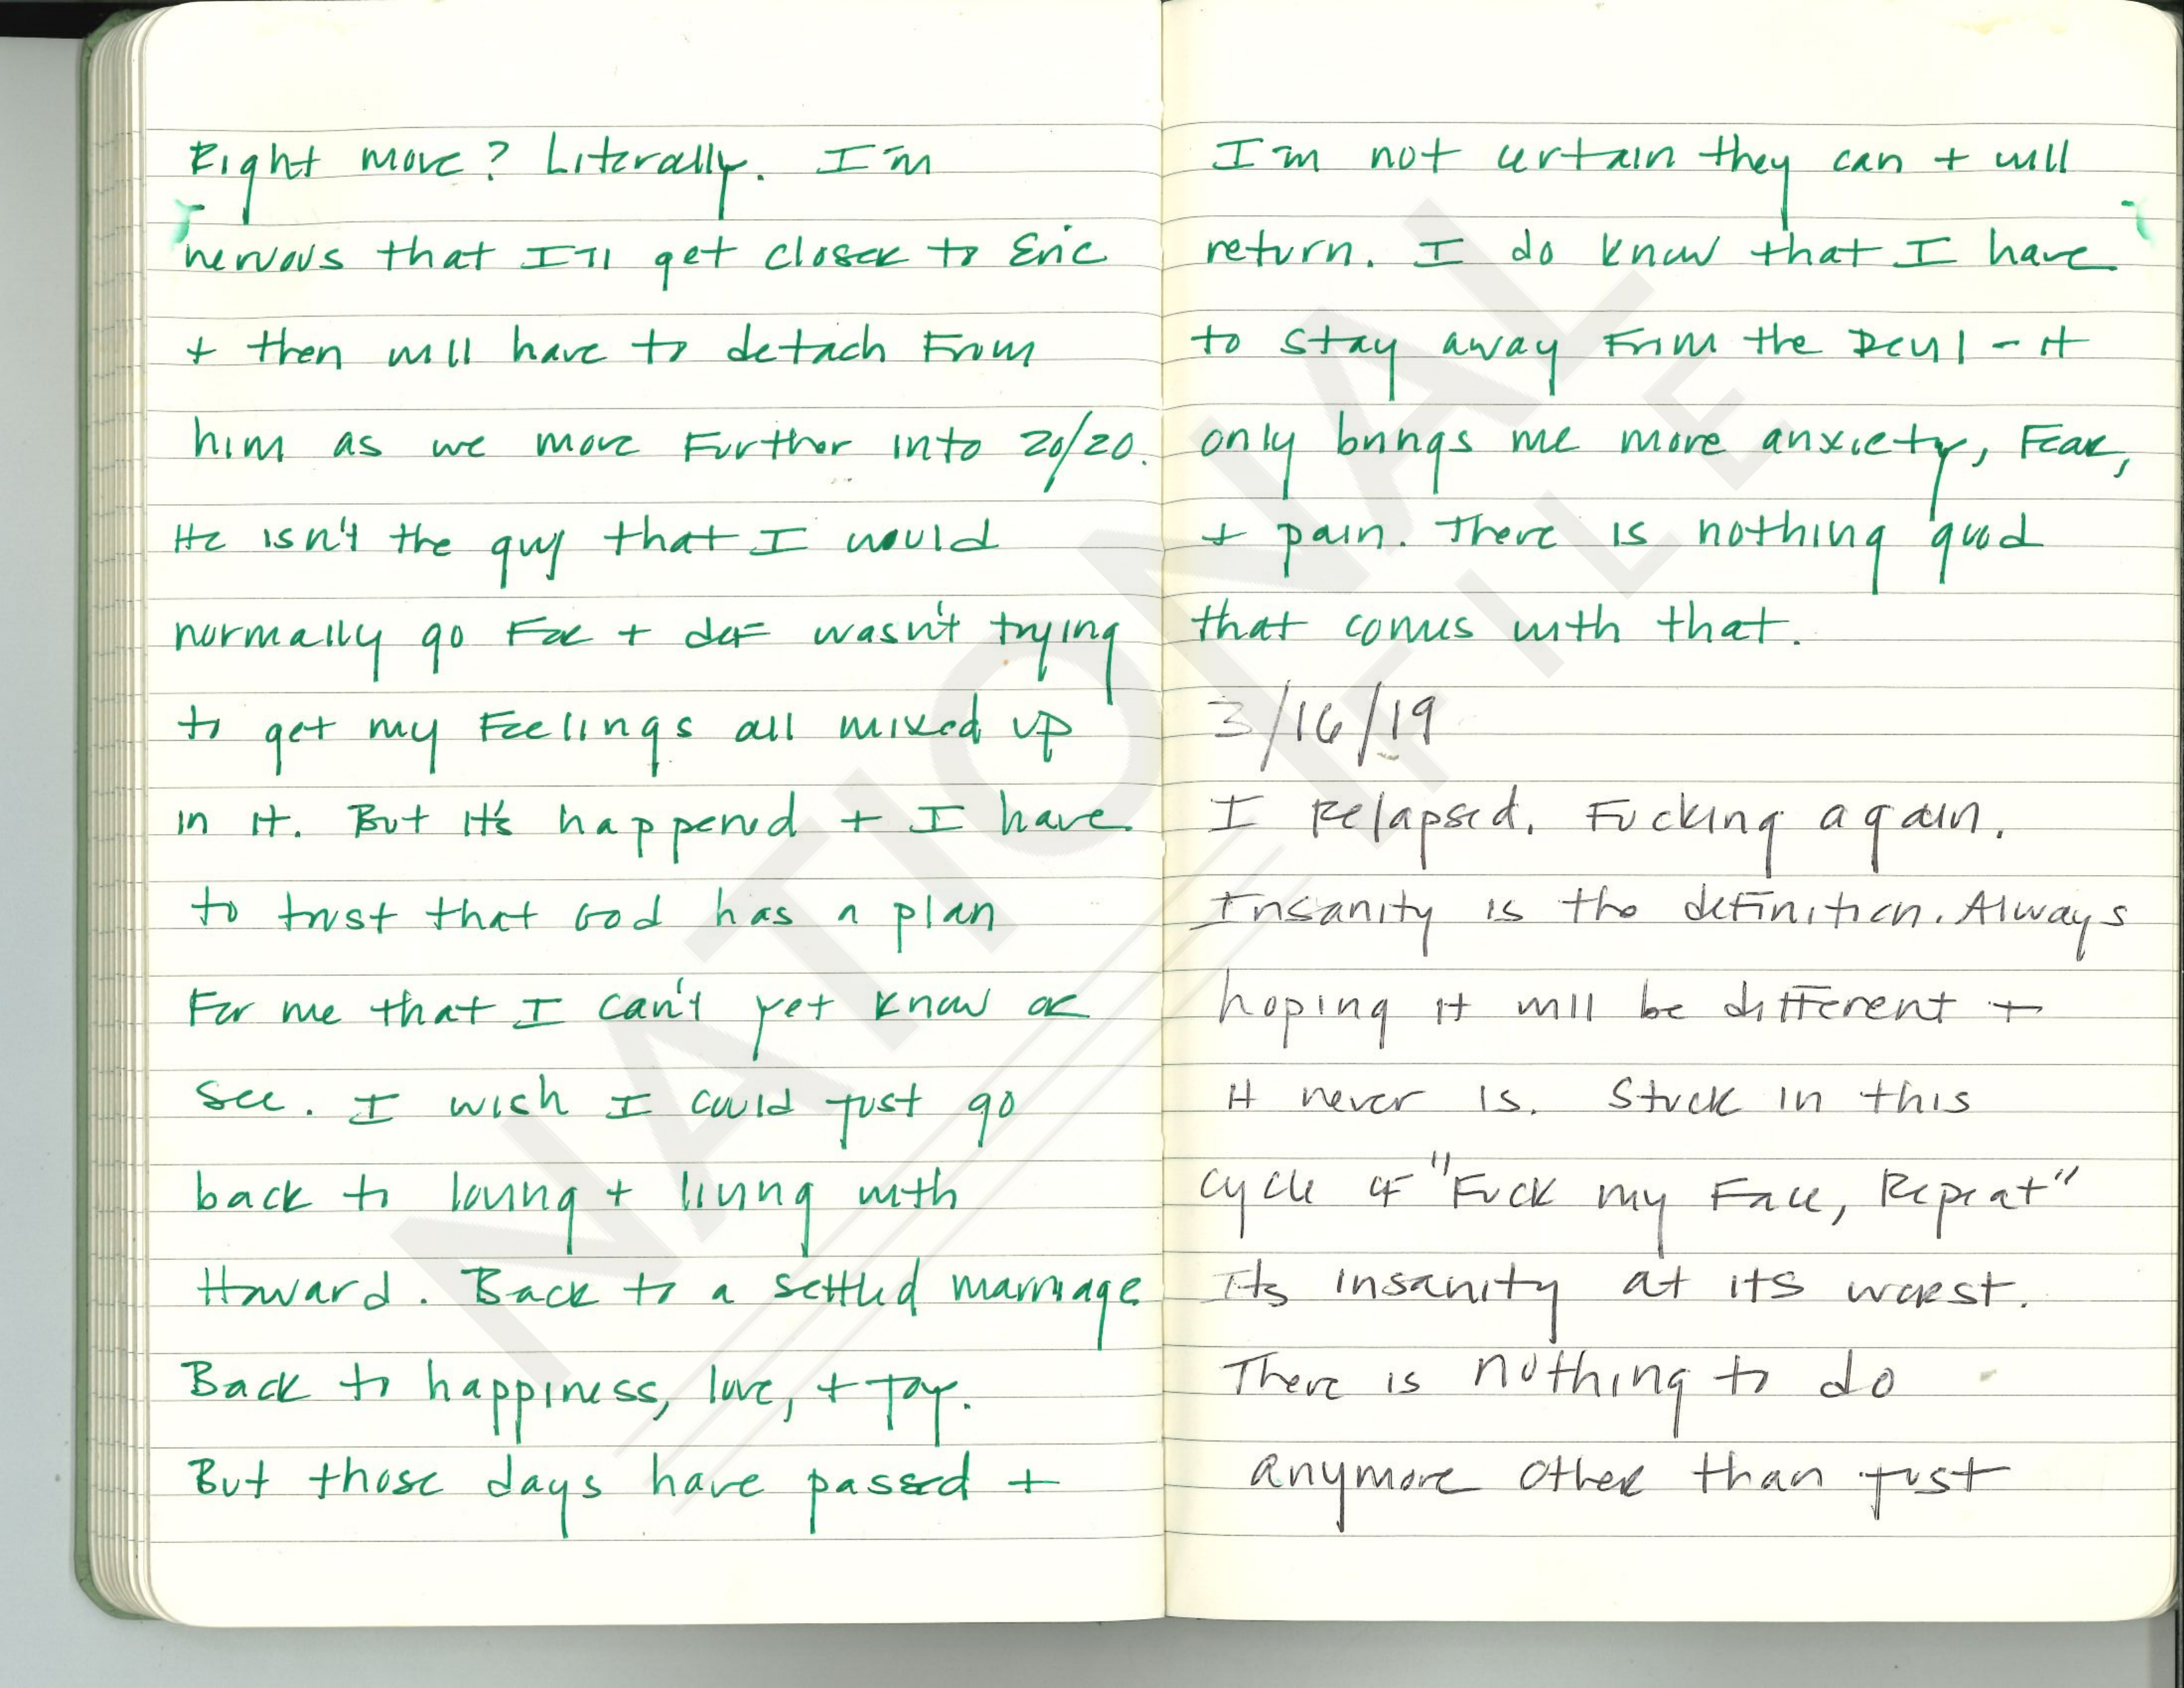 Right move? Literally. I'm
nervous that I'll get closer to Eric
+ then will have to detach from
him as we move further into 20/20.
He isn't the guy that I would
normally go for + def wasn't trying
to get my feelings all mixed up
in it. But it's happened + I have
to trust that God has a plan
for me that I can't yet know or
see. I wish I could just go
back to loving + living with
Howard. Back to a settled marriage
Back to happiness, love, + joy.
But those days have passed +
I'm not certain they can + will
return. I do know that I have
to stay away from the Devil - it
only brings me more anxiety, fear,
+ pain. There is nothing good
that comes with that.
3/16/19
I relapsed. Fucking again.
Insanity is the definition. Always
hoping it will be different +
it never is. Stuck in this
cycle of "Fuck my Face, Repeat"
Its insanity at its worst.
There is nothing to do
anymore other than just
NATIONAL
FILE